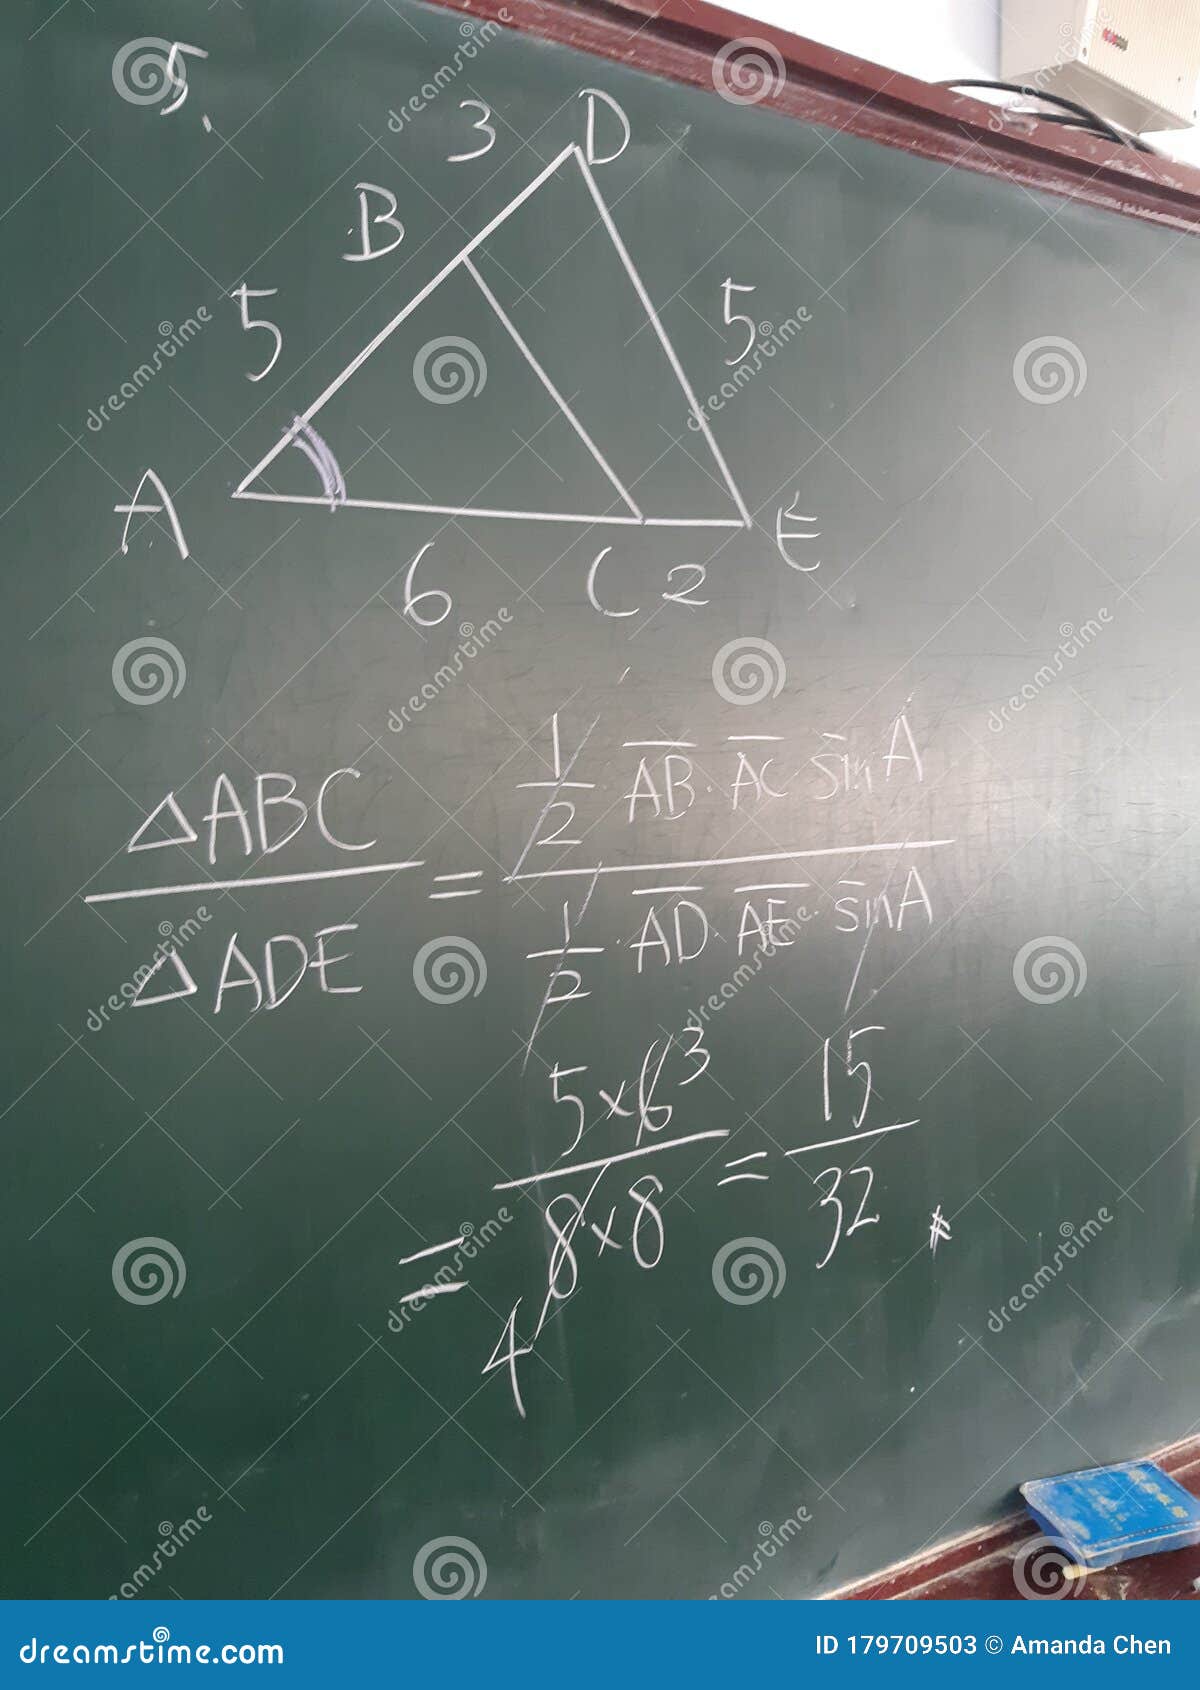 5.
3 D
B
5 5
A E
6 C 2
△ABC / △ADE = 1/2 · AB · AC · sin A / 1/2 · AD · AE · sin A
= 5×6 3 / 4 8×8 = 15/32 #
dreamstime
dreamstime.com ID 179709503 © Amanda Chen